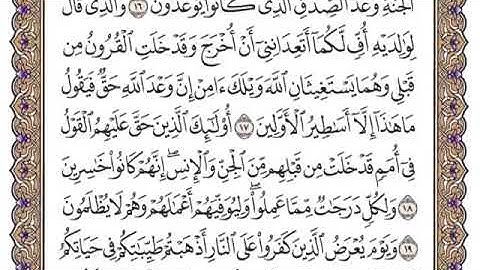 الْجَنَّةِ وَعْدَ الصِّدْقِ الَّذِي كَانُوا يُوعَدُونَ ١٦ وَالَّذِي قَالَ
لِوَالِدَيْهِ أُفٍّ لَّكُمَا أَتَعِدَانِنِي أَنْ أُخْرَجَ وَقَدْ خَلَتِ الْقُرُونُ مِن
قَبْلِي وَهُمَا يَسْتَغِيثَانِ اللَّهَ وَيْلَكَ ءَامِنْ إِنَّ وَعْدَ اللَّهِ حَقٌّ فَيَقُولُ
مَا هَٰذَا إِلَّا أَسَاطِيرُ الْأَوَّلِينَ ١٧ أُولَٰئِكَ الَّذِينَ حَقَّ عَلَيْهِمُ الْقَوْلُ
فِي أُمَمٍ قَدْ خَلَتْ مِن قَبْلِهِم مِّنَ الْجِنِّ وَالْإِنسِ ۖ إِنَّهُمْ كَانُوا خَاسِرِينَ
١٨ وَلِكُلٍّ دَرَجَاتٌ مِّمَّا عَمِلُوا ۖ وَلِيُوَفِّيَهُمْ أَعْمَالَهُمْ وَهُمْ لَا يُظْلَمُونَ
١٩ وَيَوْمَ يُعْرَضُ الَّذِينَ كَفَرُوا عَلَى النَّارِ أَذْهَبْتُمْ طَيِّبَاتِكُمْ فِي حَيَاتِكُمُ